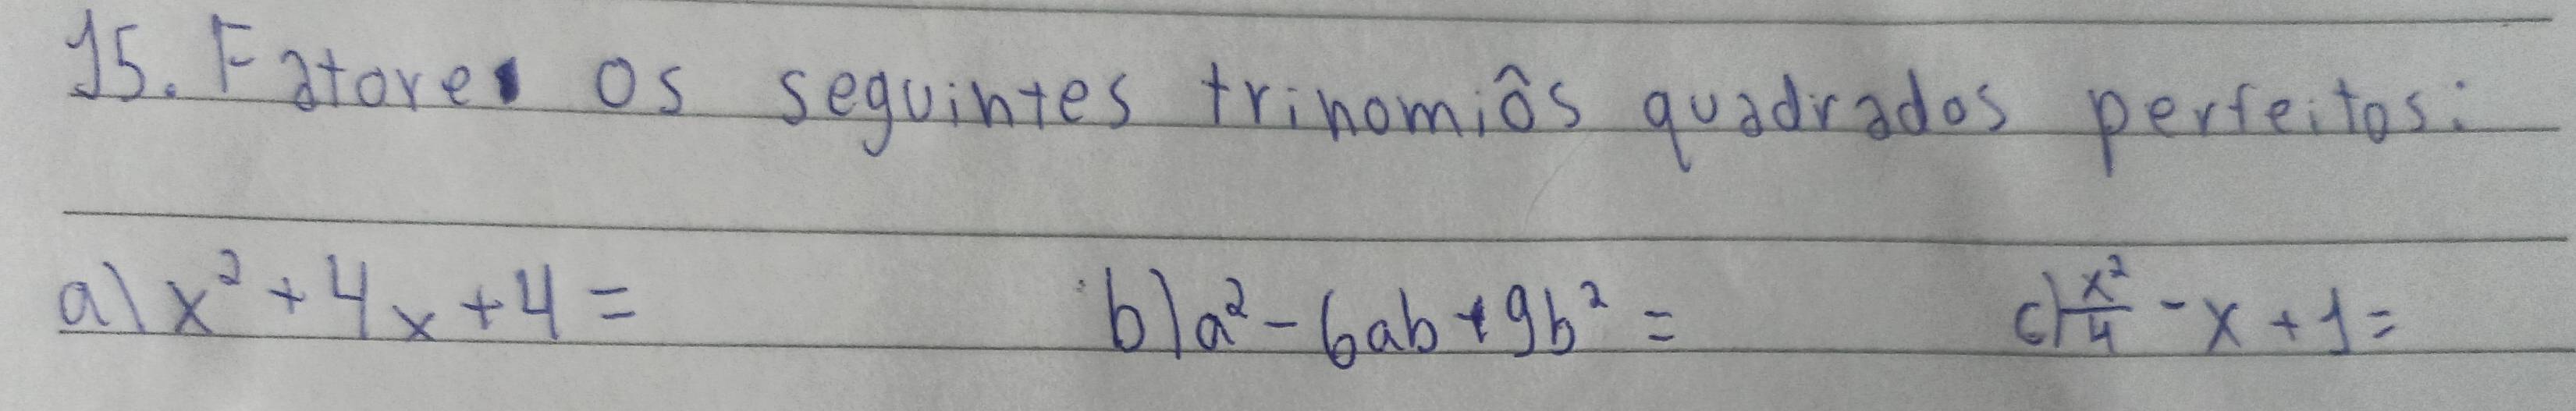 15. Fatore os seguintes trinomiôs quadrados perfeitos:
a) x² + 4x + 4 = b) a² - 6ab + 9b² = c) x²/4 - x + 1 =